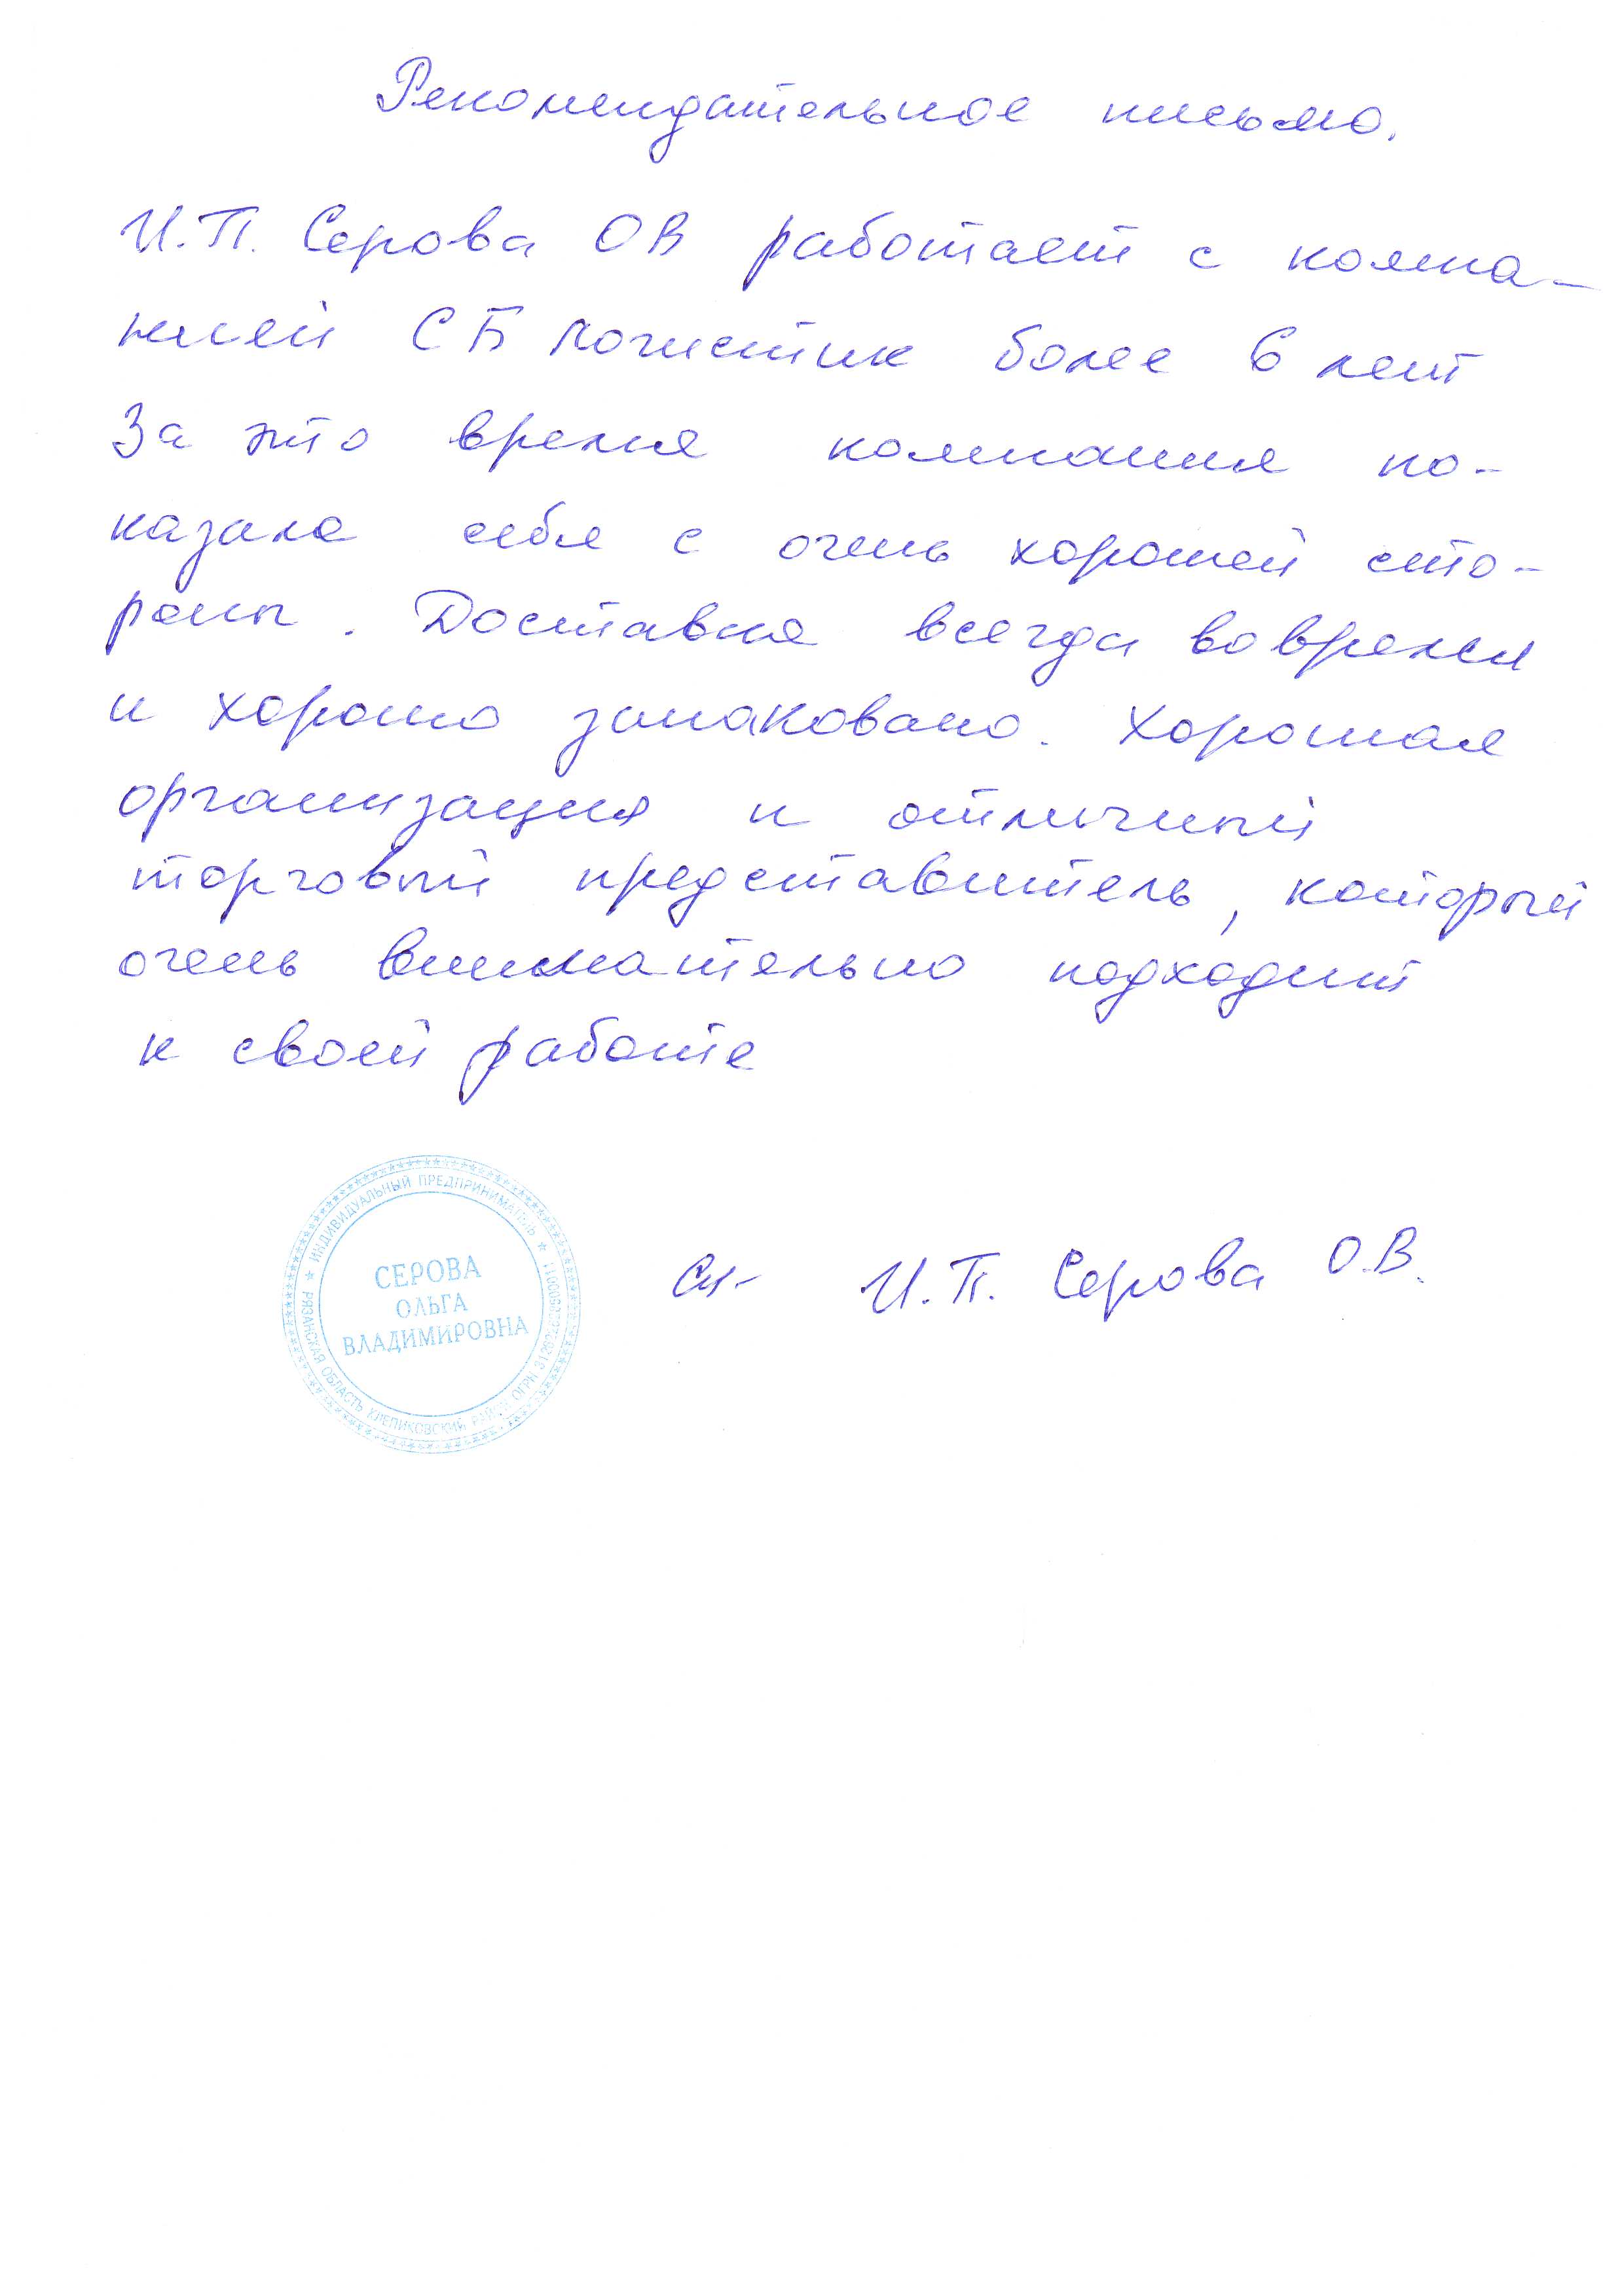 Рекомендательное письмо.
И.П. Серова ОВ работает с компа-
нией СБ Логистик более 6 лет
За это время компания по-
казала себя с очень хорошей сто-
роны. Доставка всегда вовремя
и хорошо запаковано. Хорошая
организация и отличный
торговый представитель, который
очень внимательно подходит
к своей работе
И.П. Серова О.В.
ИНДИВИДУАЛЬНЫЙ ПРЕДПРИНИМАТЕЛЬ
СЕРОВА
ОЛЬГА
ВЛАДИМИРОВНА
РЯЗАНСКАЯ ОБЛАСТЬ КЛЕПИКОВСКИЙ РАЙОН ОГРН